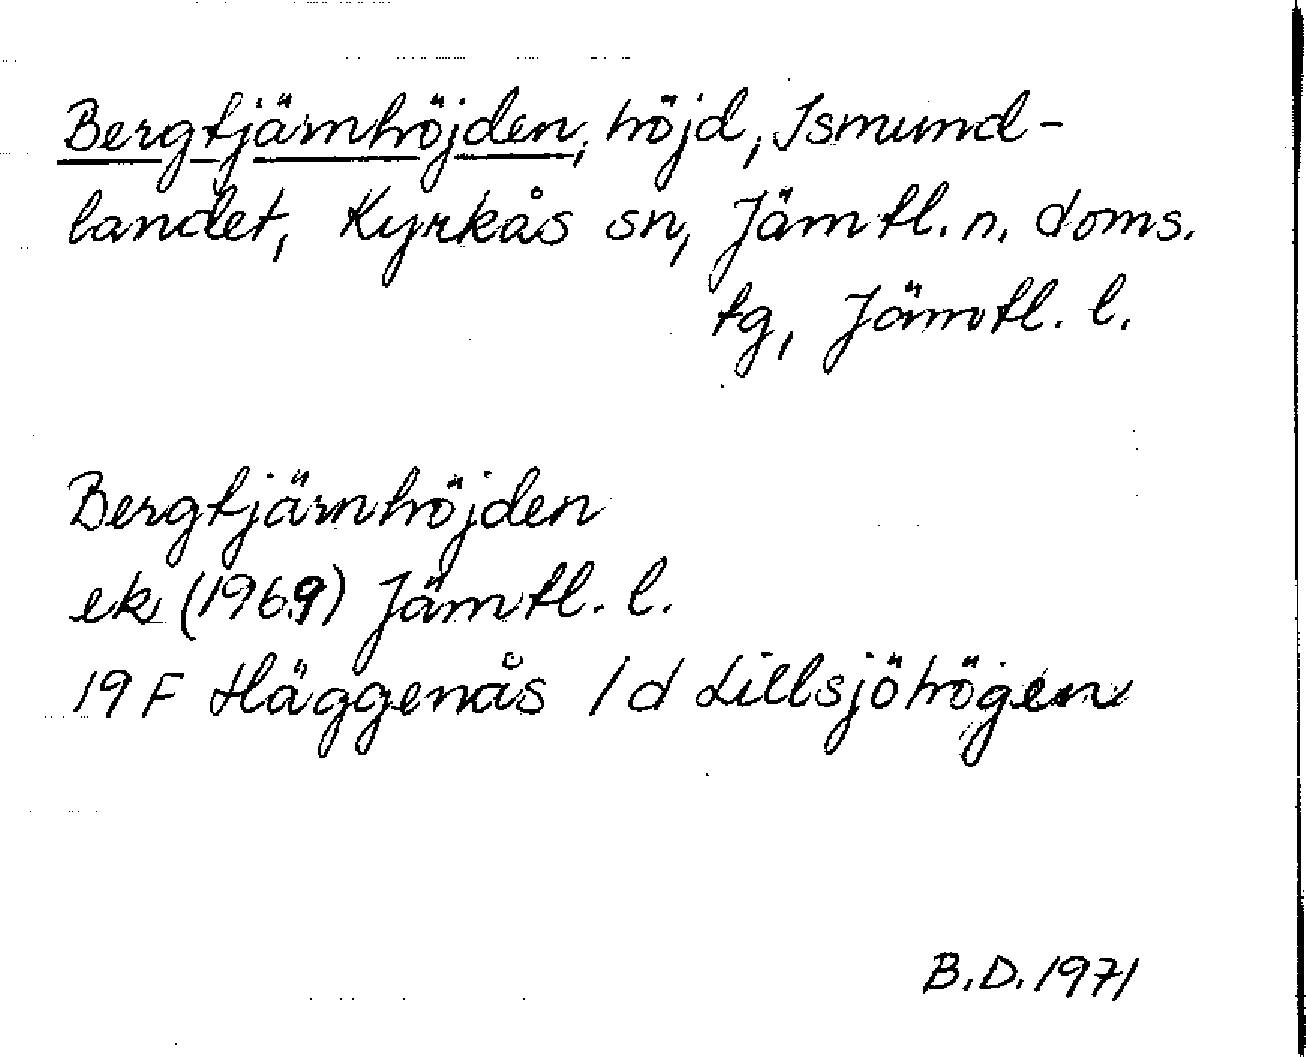 Bergtjärnhöjden, höjd, Ismund-
landet, Kyrkås sn, Jämtl. n. doms.
tg, Jämtl. l.
Bergtjärnhöjden
ek (1969) Jämtl. l.
19 F Häggenås / d Lillsjöhögen
B.D. 1971